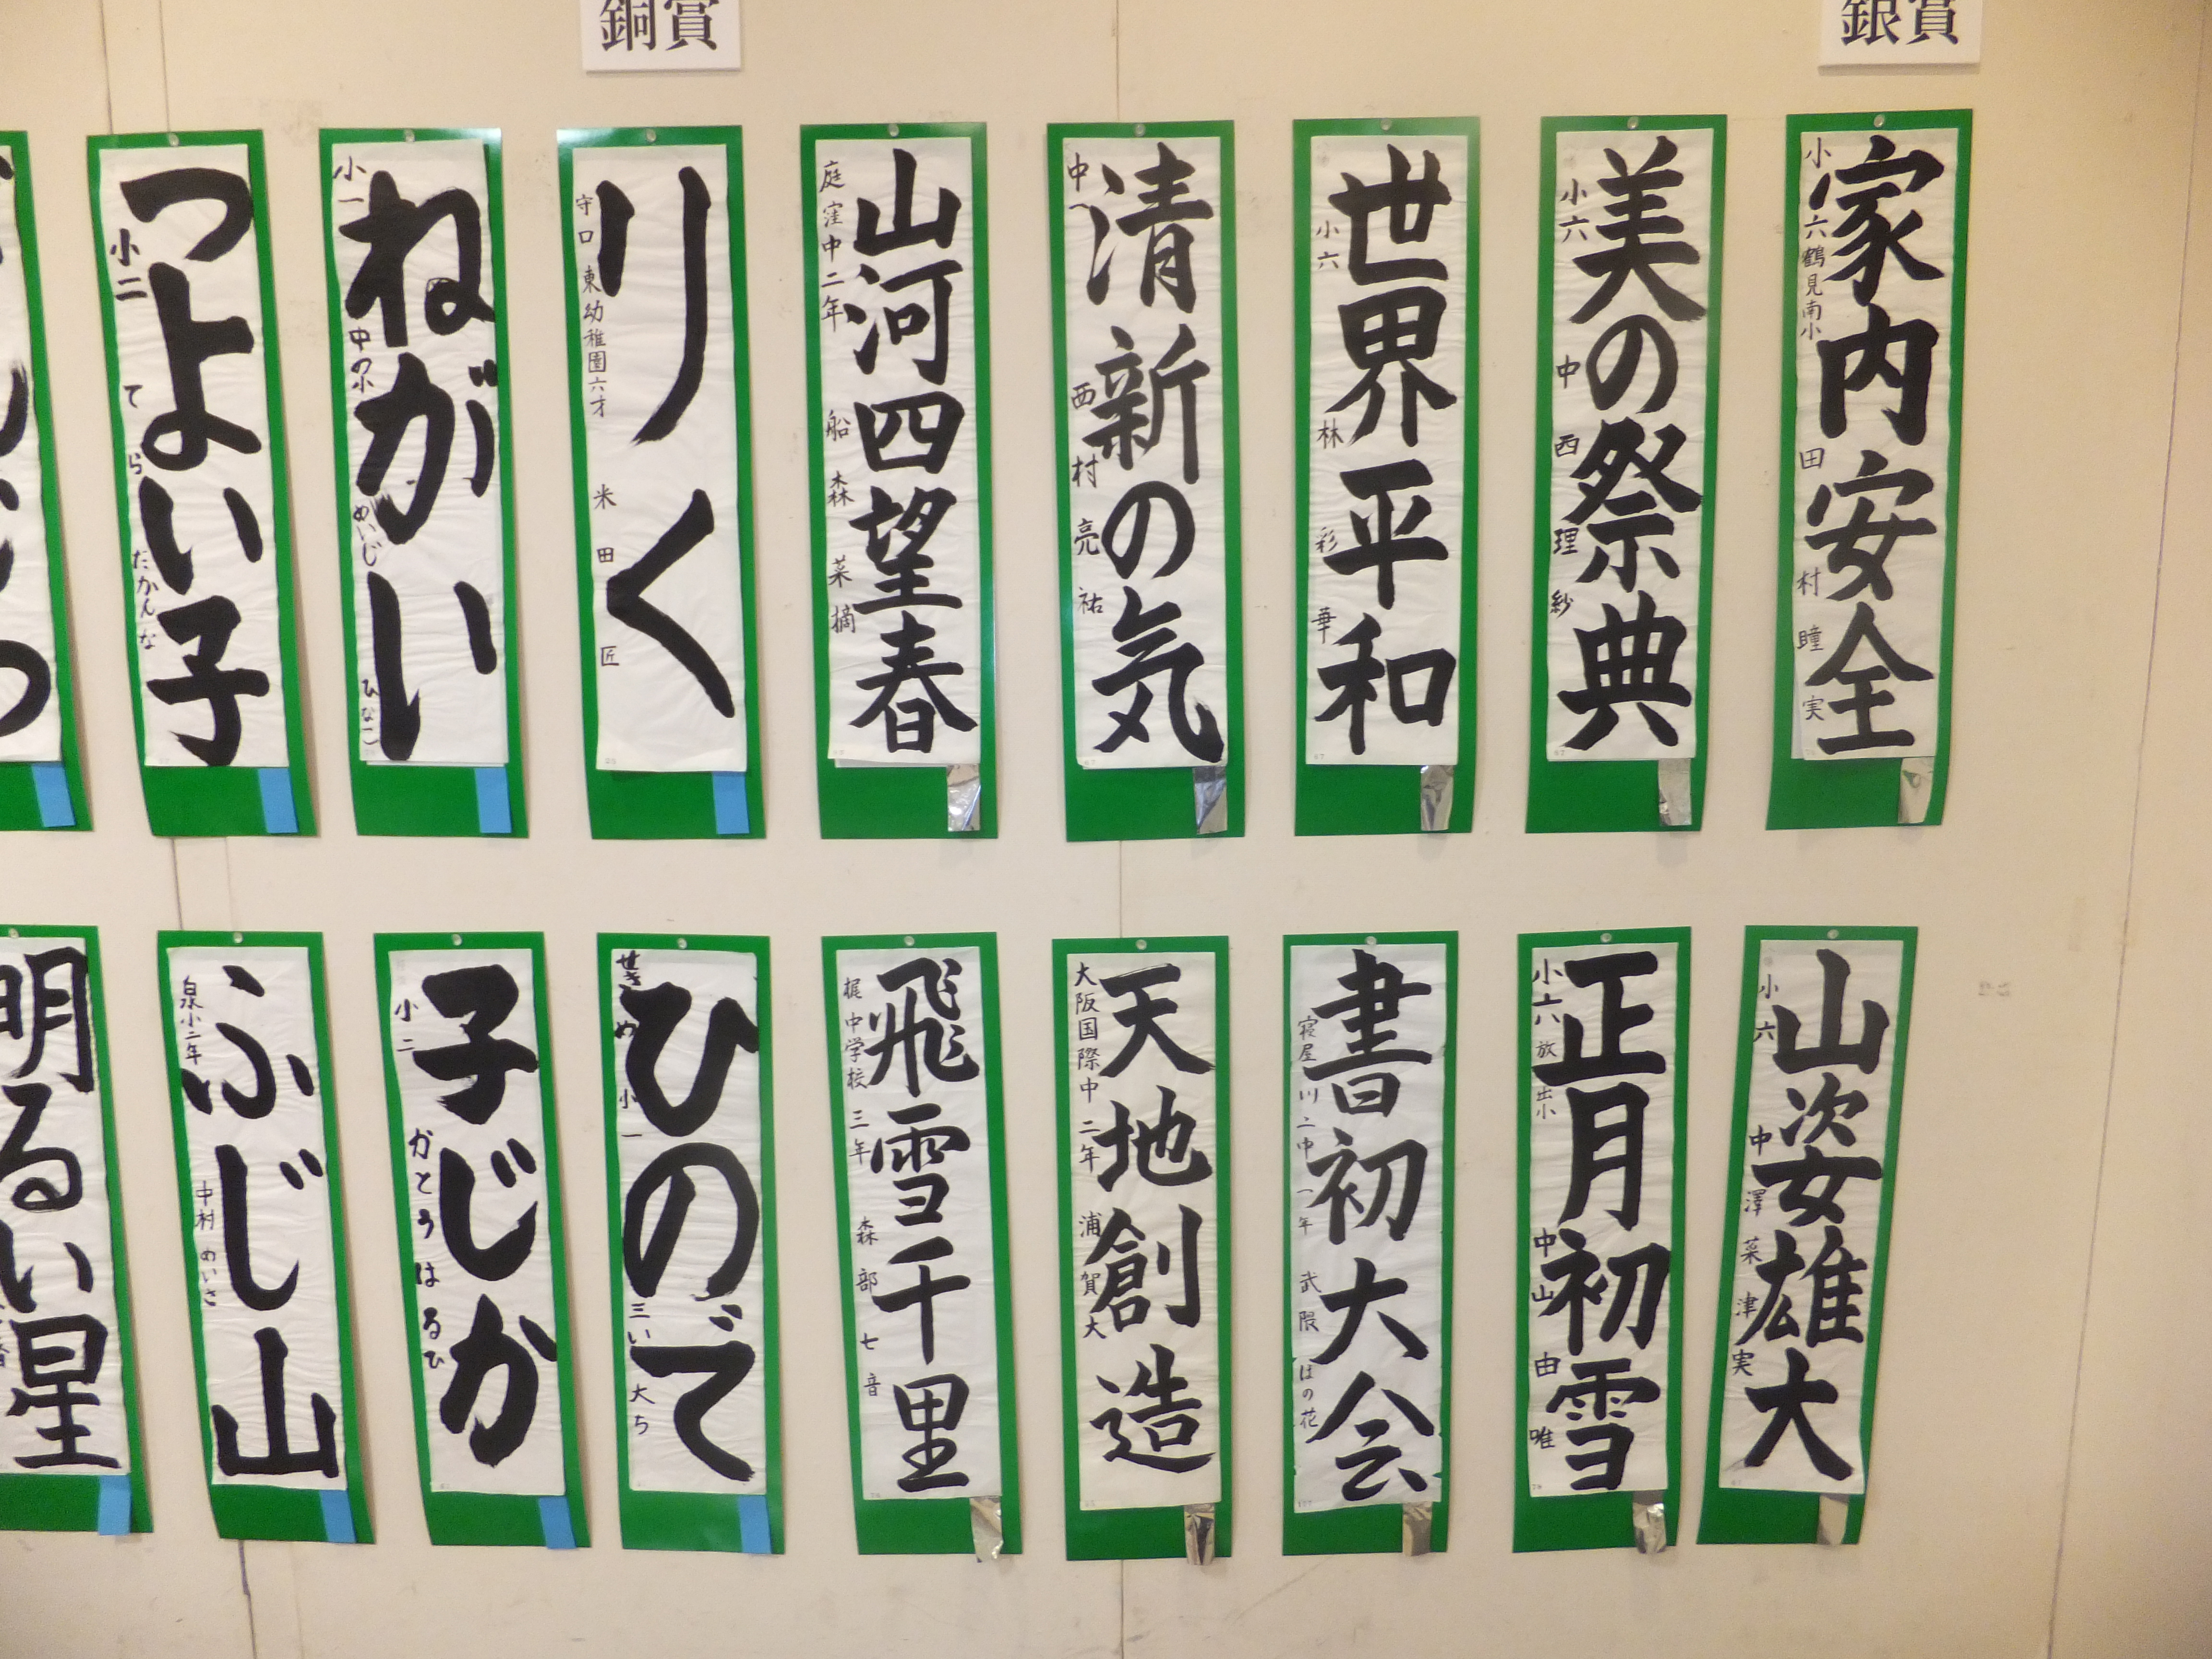 銀賞
家内安全
小六 鶴見南小 田村瞳実
美の祭典
小六 中西理紗
世界平和
小六 林彩華
清新の気
中一 西村亮祐
山河四望春
庭窪中二年 船森菜摘
銅賞
りく
守口東幼稚園六才 米田匠
ねがい
小一 中の小 めいじ ひなこ
つよい子
小二 てらだ かんな
山姿雄大
小六 中澤菜津実
正月初雪
小六 放出小 中山由唯
書初大会
寝屋川二中一年 武隈ほの花
天地創造
大阪国際中二年 浦賀大
飛雪千里
梶中学校三年 森部七音
ひので
小一 大ち
子じか
小二 かとうはるひ
ふじ山
泉小二年 中村めいさ
明るい星